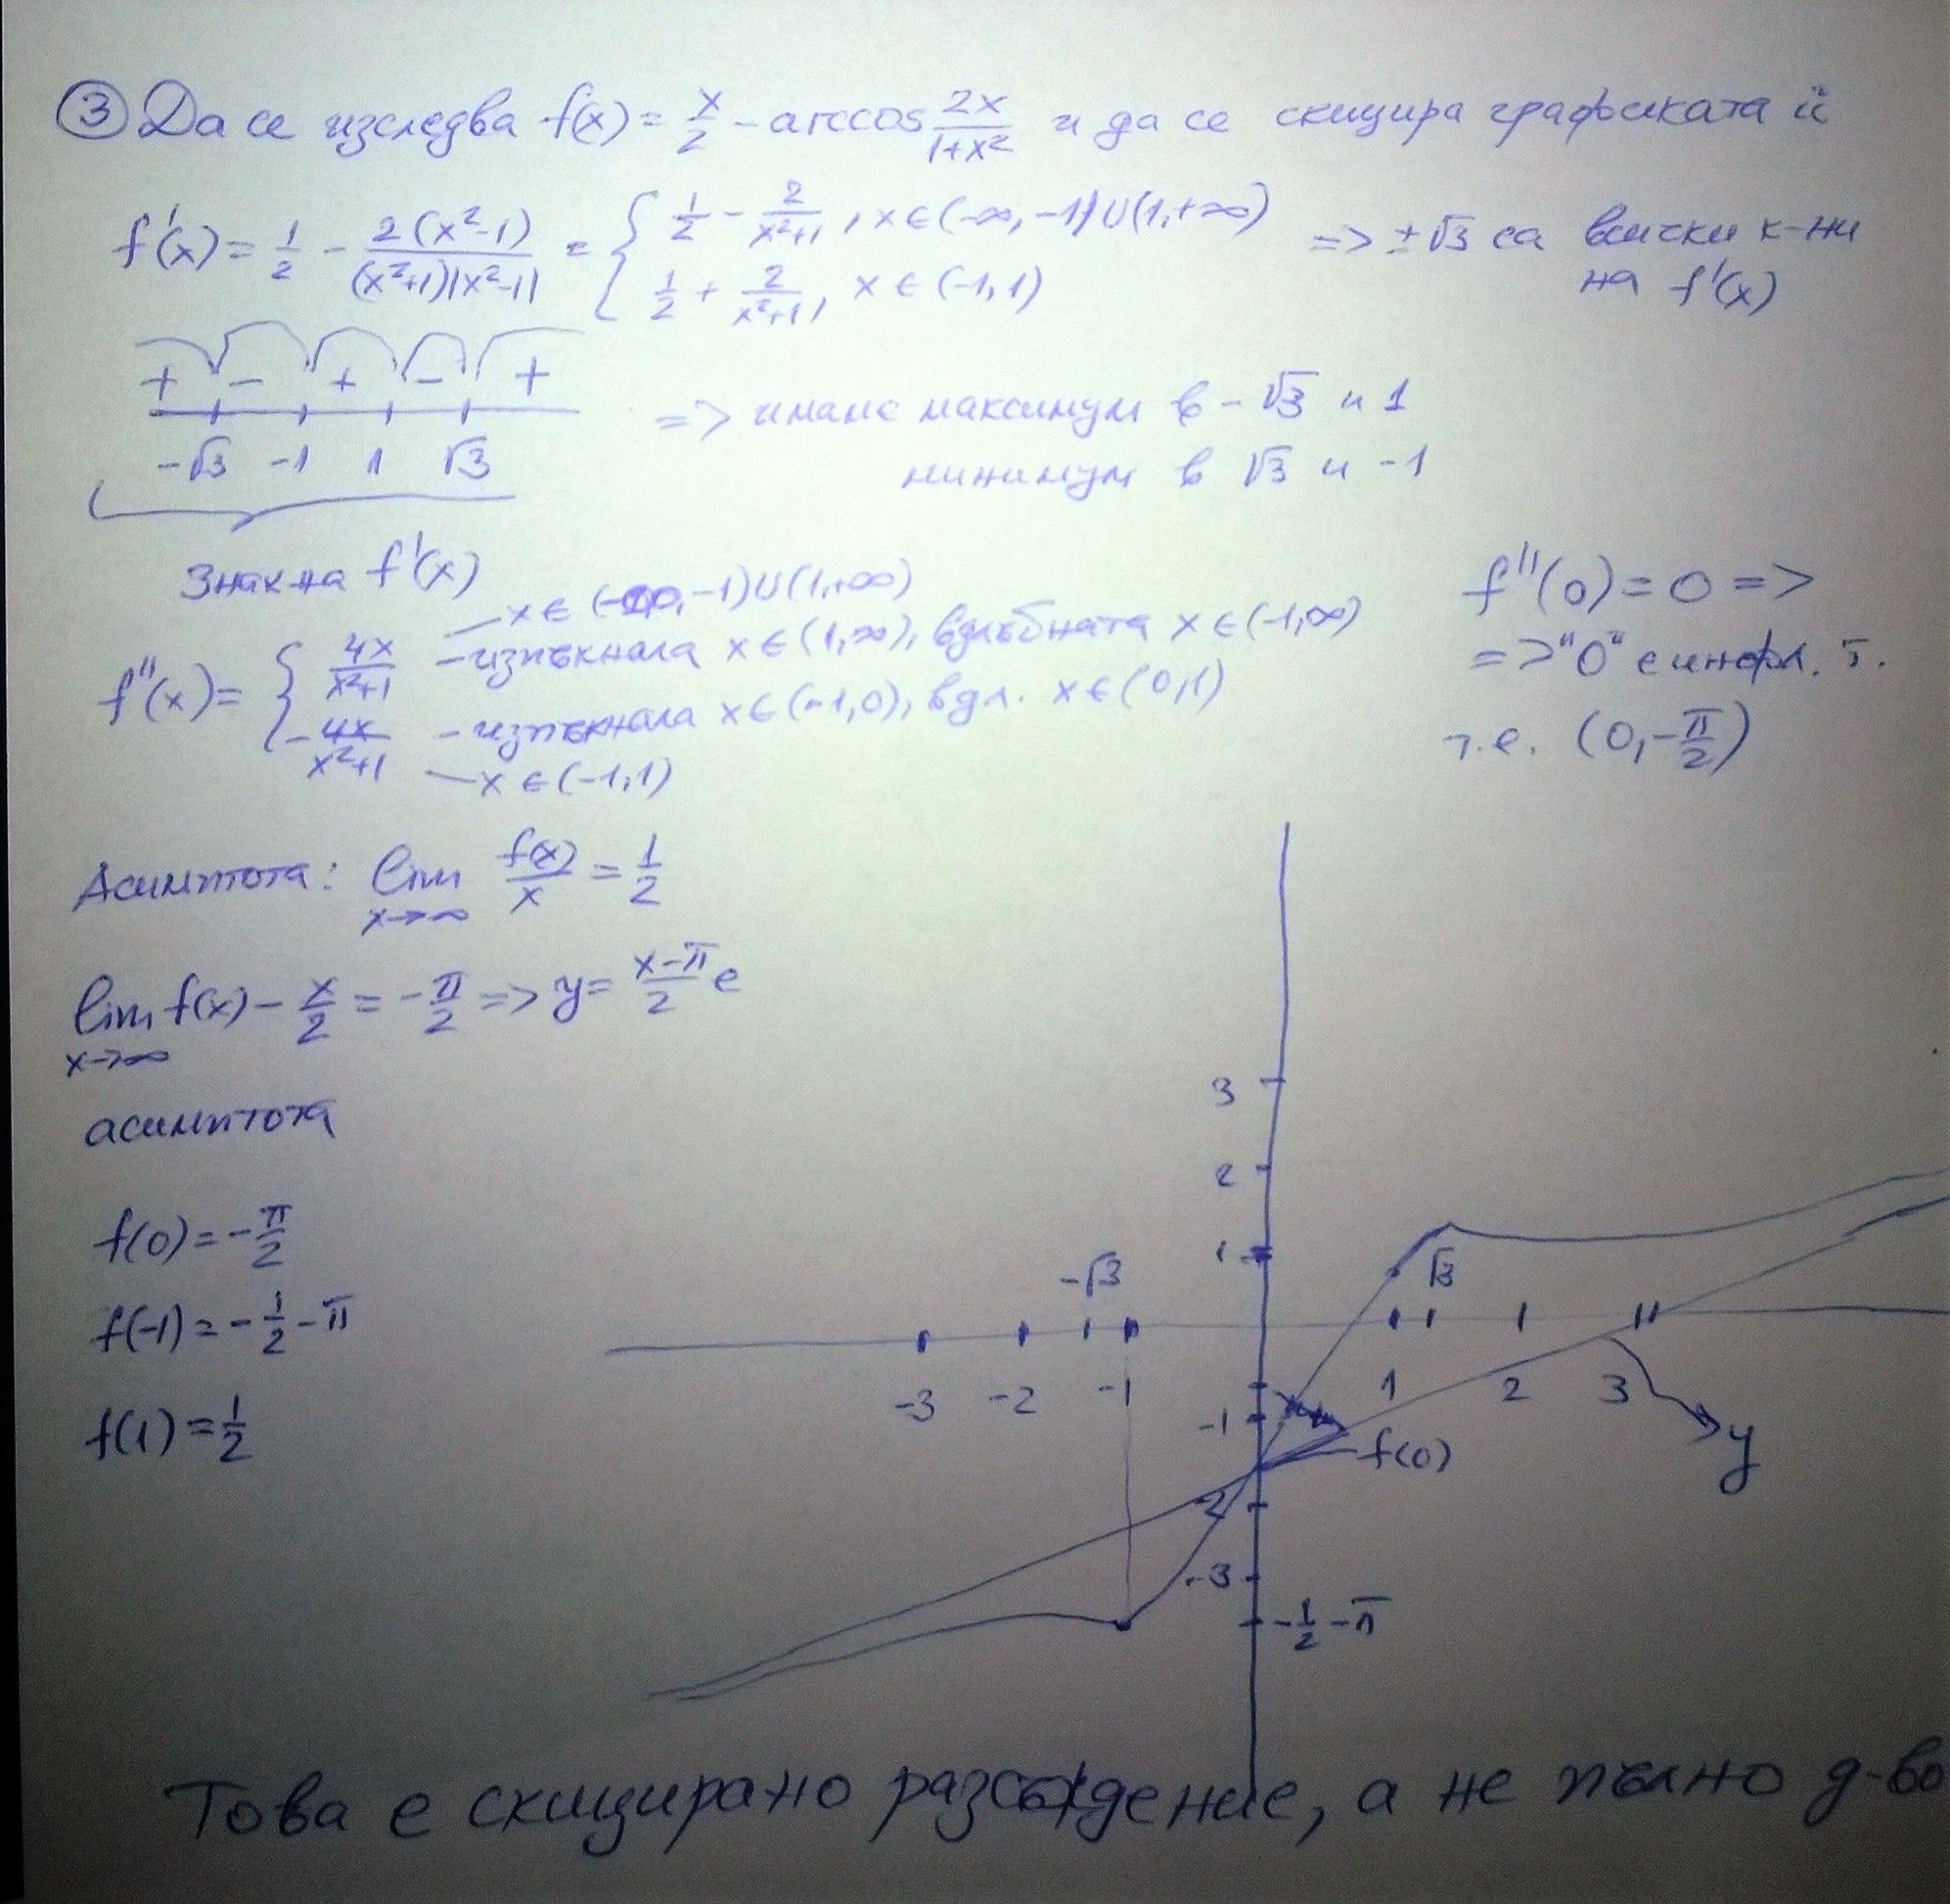 ③ Да се изследва f(x) = x/2 - arccos 2x/(1+x²) и да се скицира графиката ѝ
f'(x) = 1/2 - 2(x²-1)/((x²+1)|x²-1|) = { 1/2 - 2/(x²+1), x ∈ (-∞, -1) ∪ (1, +∞)
1/2 + 2/(x²+1), x ∈ (-1, 1)
=> ±√3 са всички к-ни
на f'(x)
+ - + - +
-√3 -1 1 √3
=> имаме максимум в -√3 и 1
минимум в √3 и -1
Знак на f'(x)
x ∈ (-∞, -1) ∪ (1, +∞)
f''(x) = { 4x/(x²+1) - изпъкнала x ∈ (1, ∞), вдлъбната x ∈ (-1, ∞)
-4x/(x²+1) - изпъкнала x ∈ (-1, 0), вдл. x ∈ (0, 1)
x ∈ (-1, 1)
f''(0) = 0 =>
=> "0" е инфл. т.
т.е. (0, -π/2)
Асимптота: lim x→∞ f(x)/x = 1/2
lim x→∞ f(x) - x/2 = -π/2 => y = (x-π)/2 е
асимптота
f(0) = -π/2
f(-1) = -1/2 - π
f(1) = 1/2
3
2
1
-√3 √3
-3 -2 -1 1 2 3
-1
f(0)
y
-2
-3
-1/2 - π
Това е скицирано разсъждение, а не пълно д-во